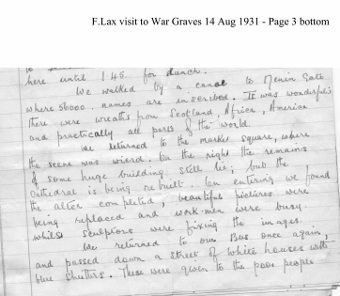 F.Lax visit to War Graves 14 Aug 1931 - Page 3 bottom
here until 1.45. for lunch.
We walked by a canal to Menin Gate
where 56000. names are inscribed. It was wonderful
there were wreaths from Scotland, Africa, America
and practically all parts of the world
We returned to the market square, where
the scene was wierd. On the right the remains
of some huge building still lie, but the
cathedral is being rebuilt. On entering we found
the alter completed, beautiful pictures were
being replaced and work-men were busy.
whilst sculptors were fixing the images.
We returned to our Bus once again,
and passed down a street of white houses with
blue shutters. These were given to the poor people